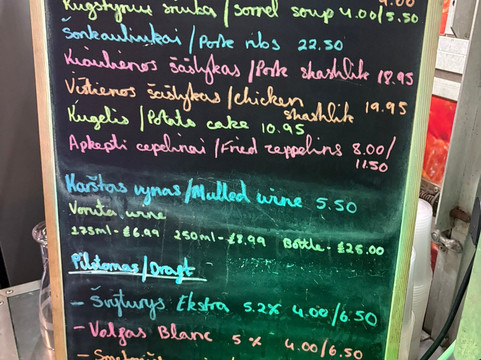 4.00
Rūgštynių sriuba / Sorrel soup 4.00/5.50
Šonkauliukai / Pork ribs 22.50
Kiaulienos šašlykas / Pork shashlik 18.95
Vištienos šašlykas / chicken shashlik 19.95
Kugelis / Potato cake 10.95
Apkepti cepelinai / Fried zeppelins 8.00/
11.50
Karštas vynas / Mulled wine 5.50
Voruta wine
175ml - £6.99 250ml - £8.99 Bottle - £25.00
Pilstomas / Draft
- Švyturys Ekstra 5.2% 4.00/6.50
- Volfas Blanc 5% 4.00/6.50